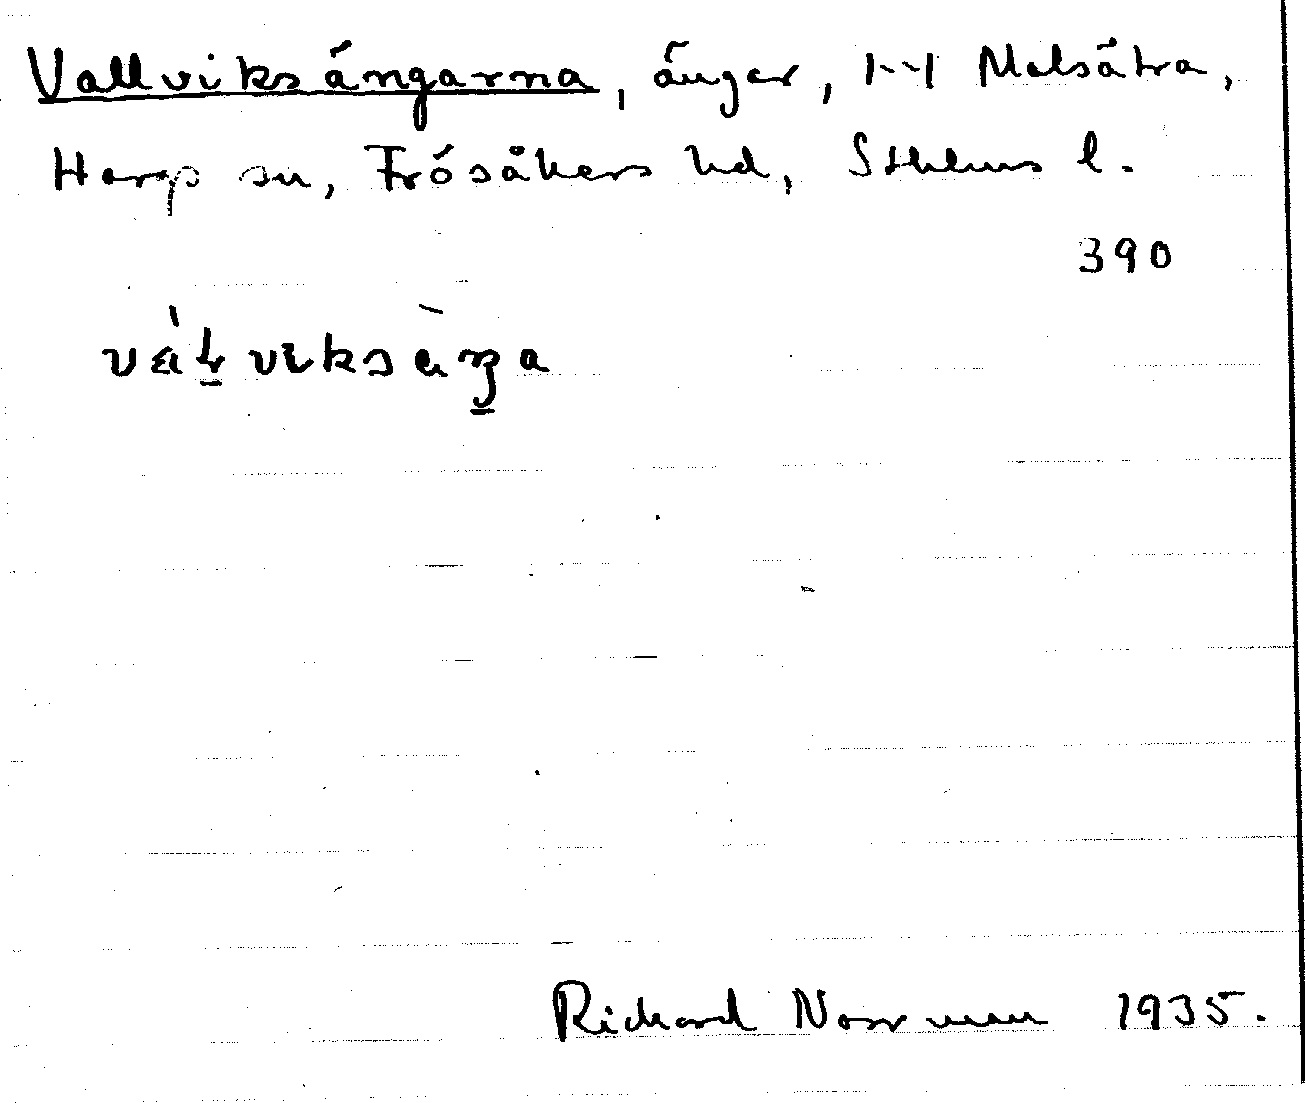 Vallviksängarna, ängar, 1-4 Malsätra,
Harg sn, Frösåkers hd, Sthlms l.
390
Richard Norrman 1935.